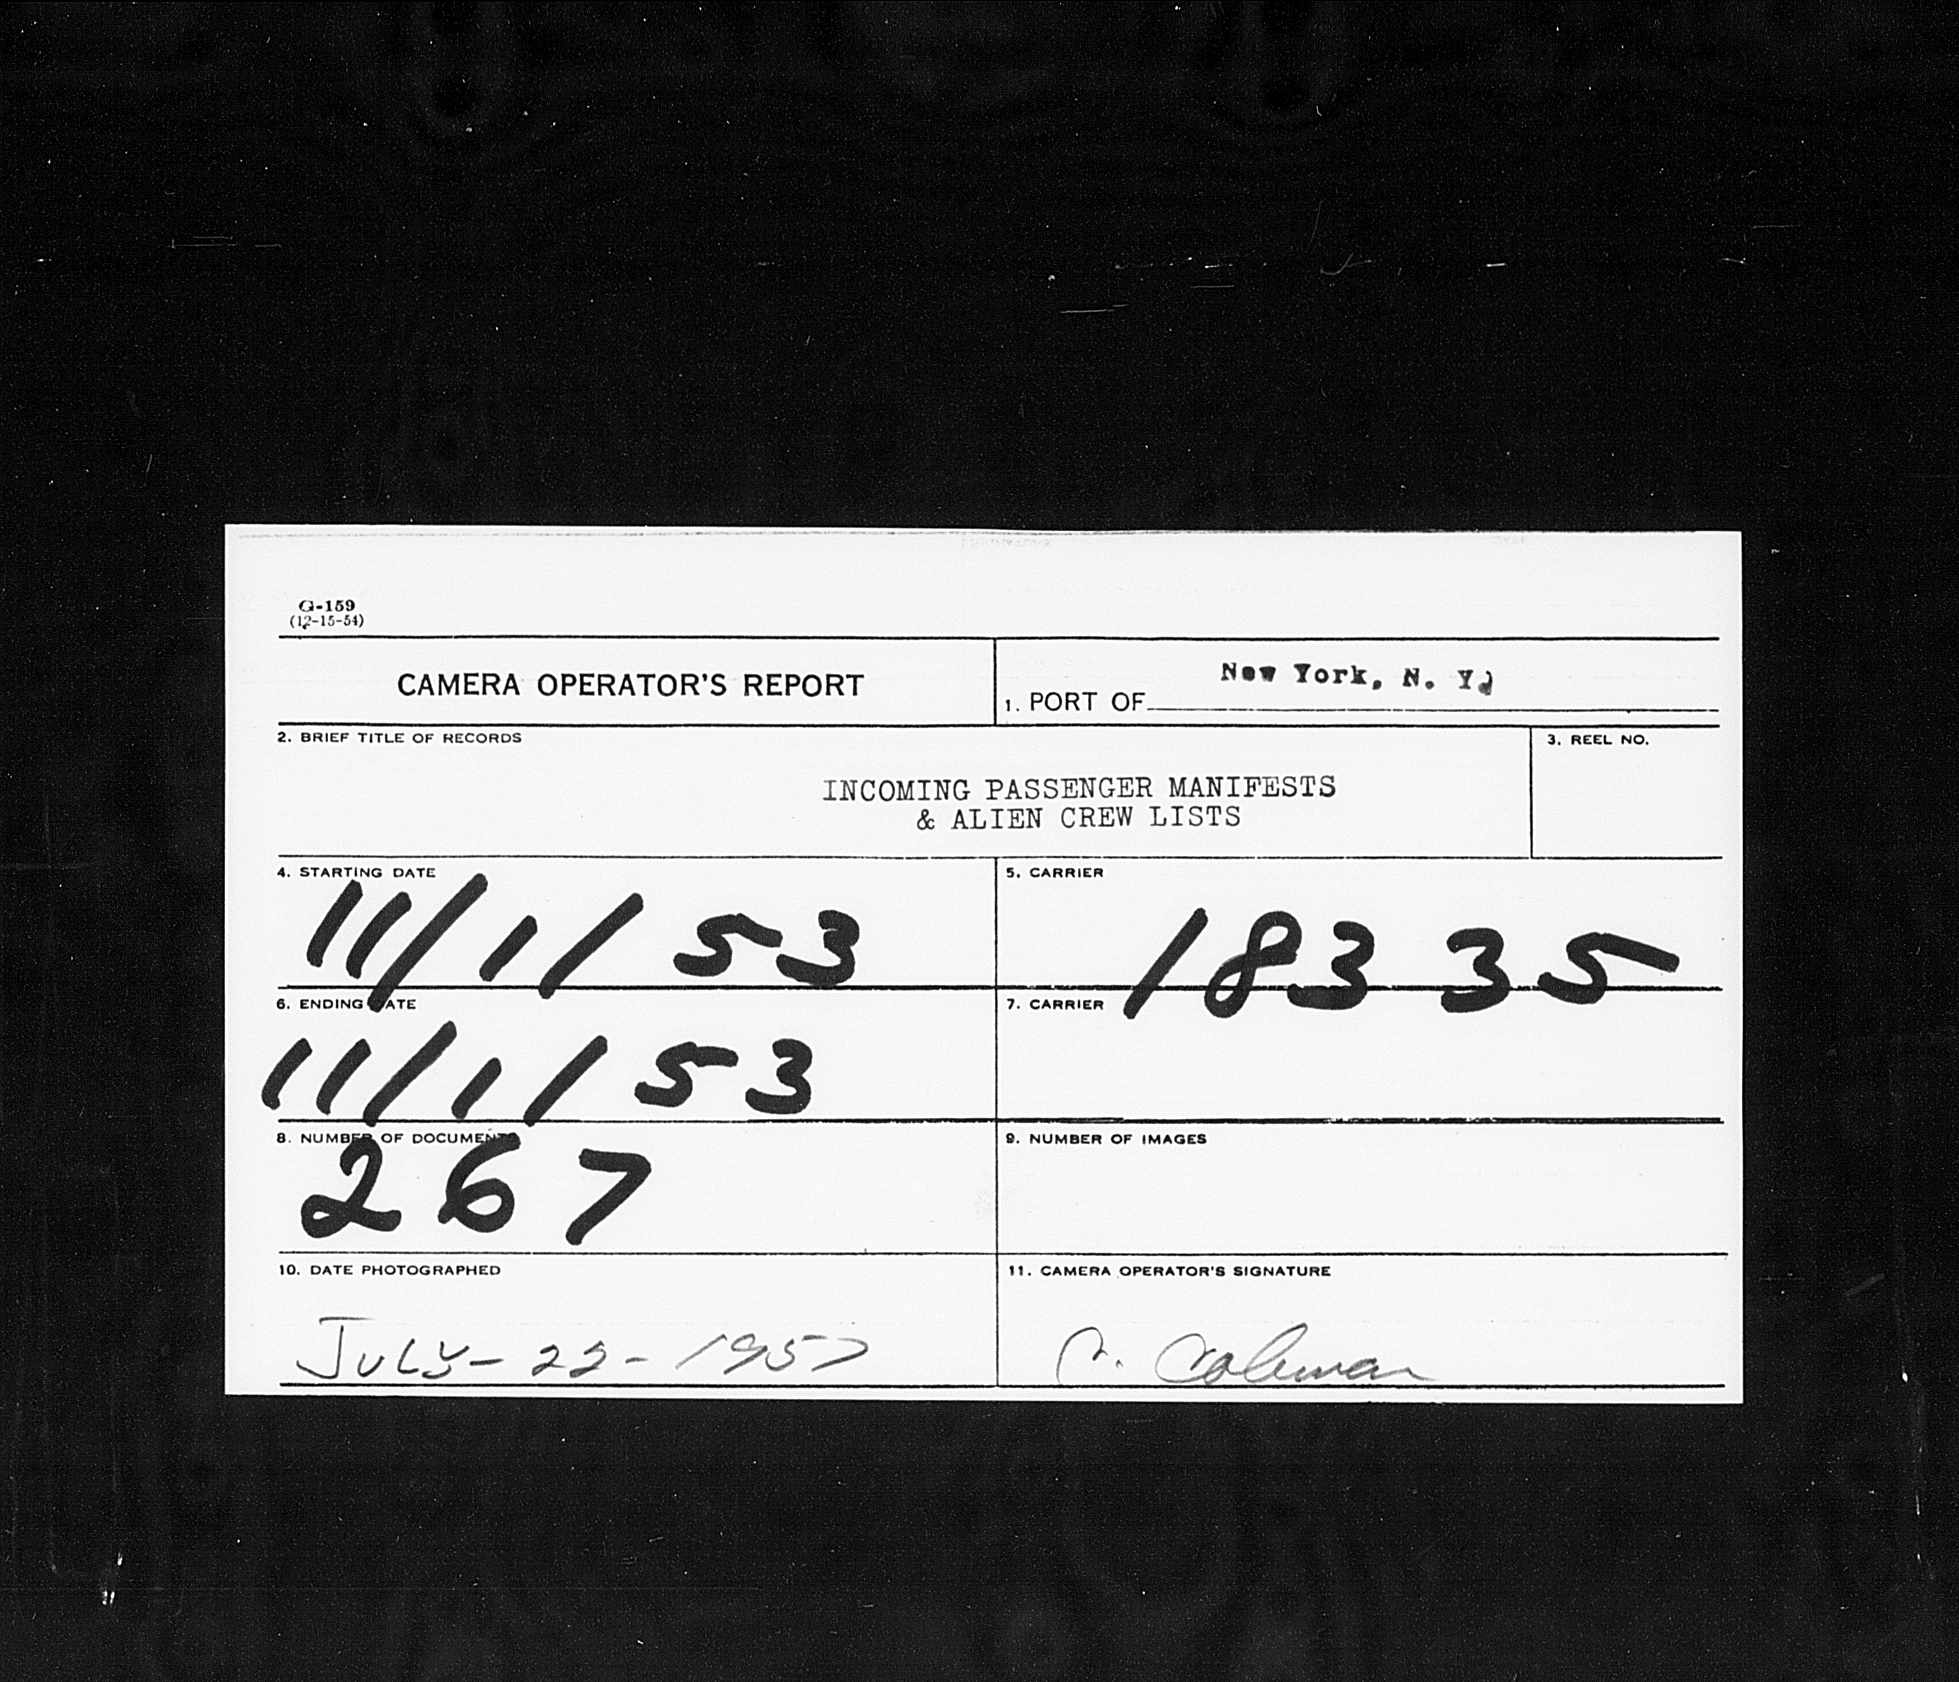 G-159
(12-15-54)
CAMERA OPERATOR'S REPORT
1. PORT OF New York, N. Y.
2. BRIEF TITLE OF RECORDS
3. REEL NO.
INCOMING PASSENGER MANIFESTS
& ALIEN CREW LISTS
4. STARTING DATE
11/1/53
5. CARRIER
18335
6. ENDING DATE
11/1/53
7. CARRIER
8. NUMBER OF DOCUMENTS
267
9. NUMBER OF IMAGES
10. DATE PHOTOGRAPHED
JULY-22-1957
11. CAMERA OPERATOR'S SIGNATURE
Coleman